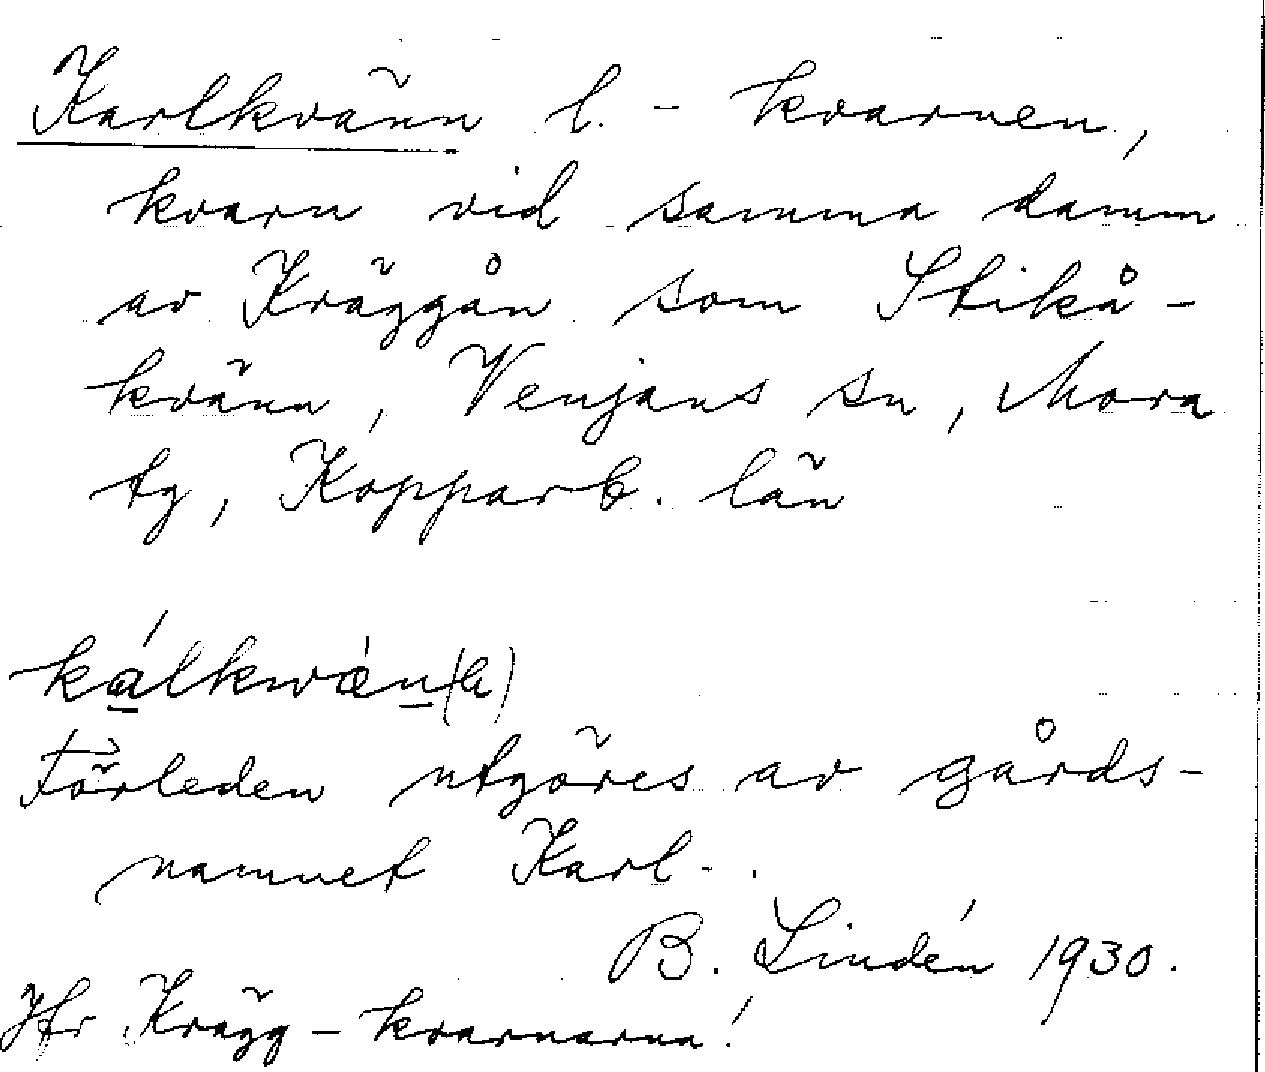 Karlkvänn l. - kvarnen,
kvarn vid samma damm
av Kräggån som Stikå-
kvänn, Venjans sn, Mora
tg, Kopparb. län
kálkwæ̀n(a)
Förleden utgöres av gårds-
namnet Karl-.
B. Lindén 1930.
Jfr Krägg-kvarnarna!